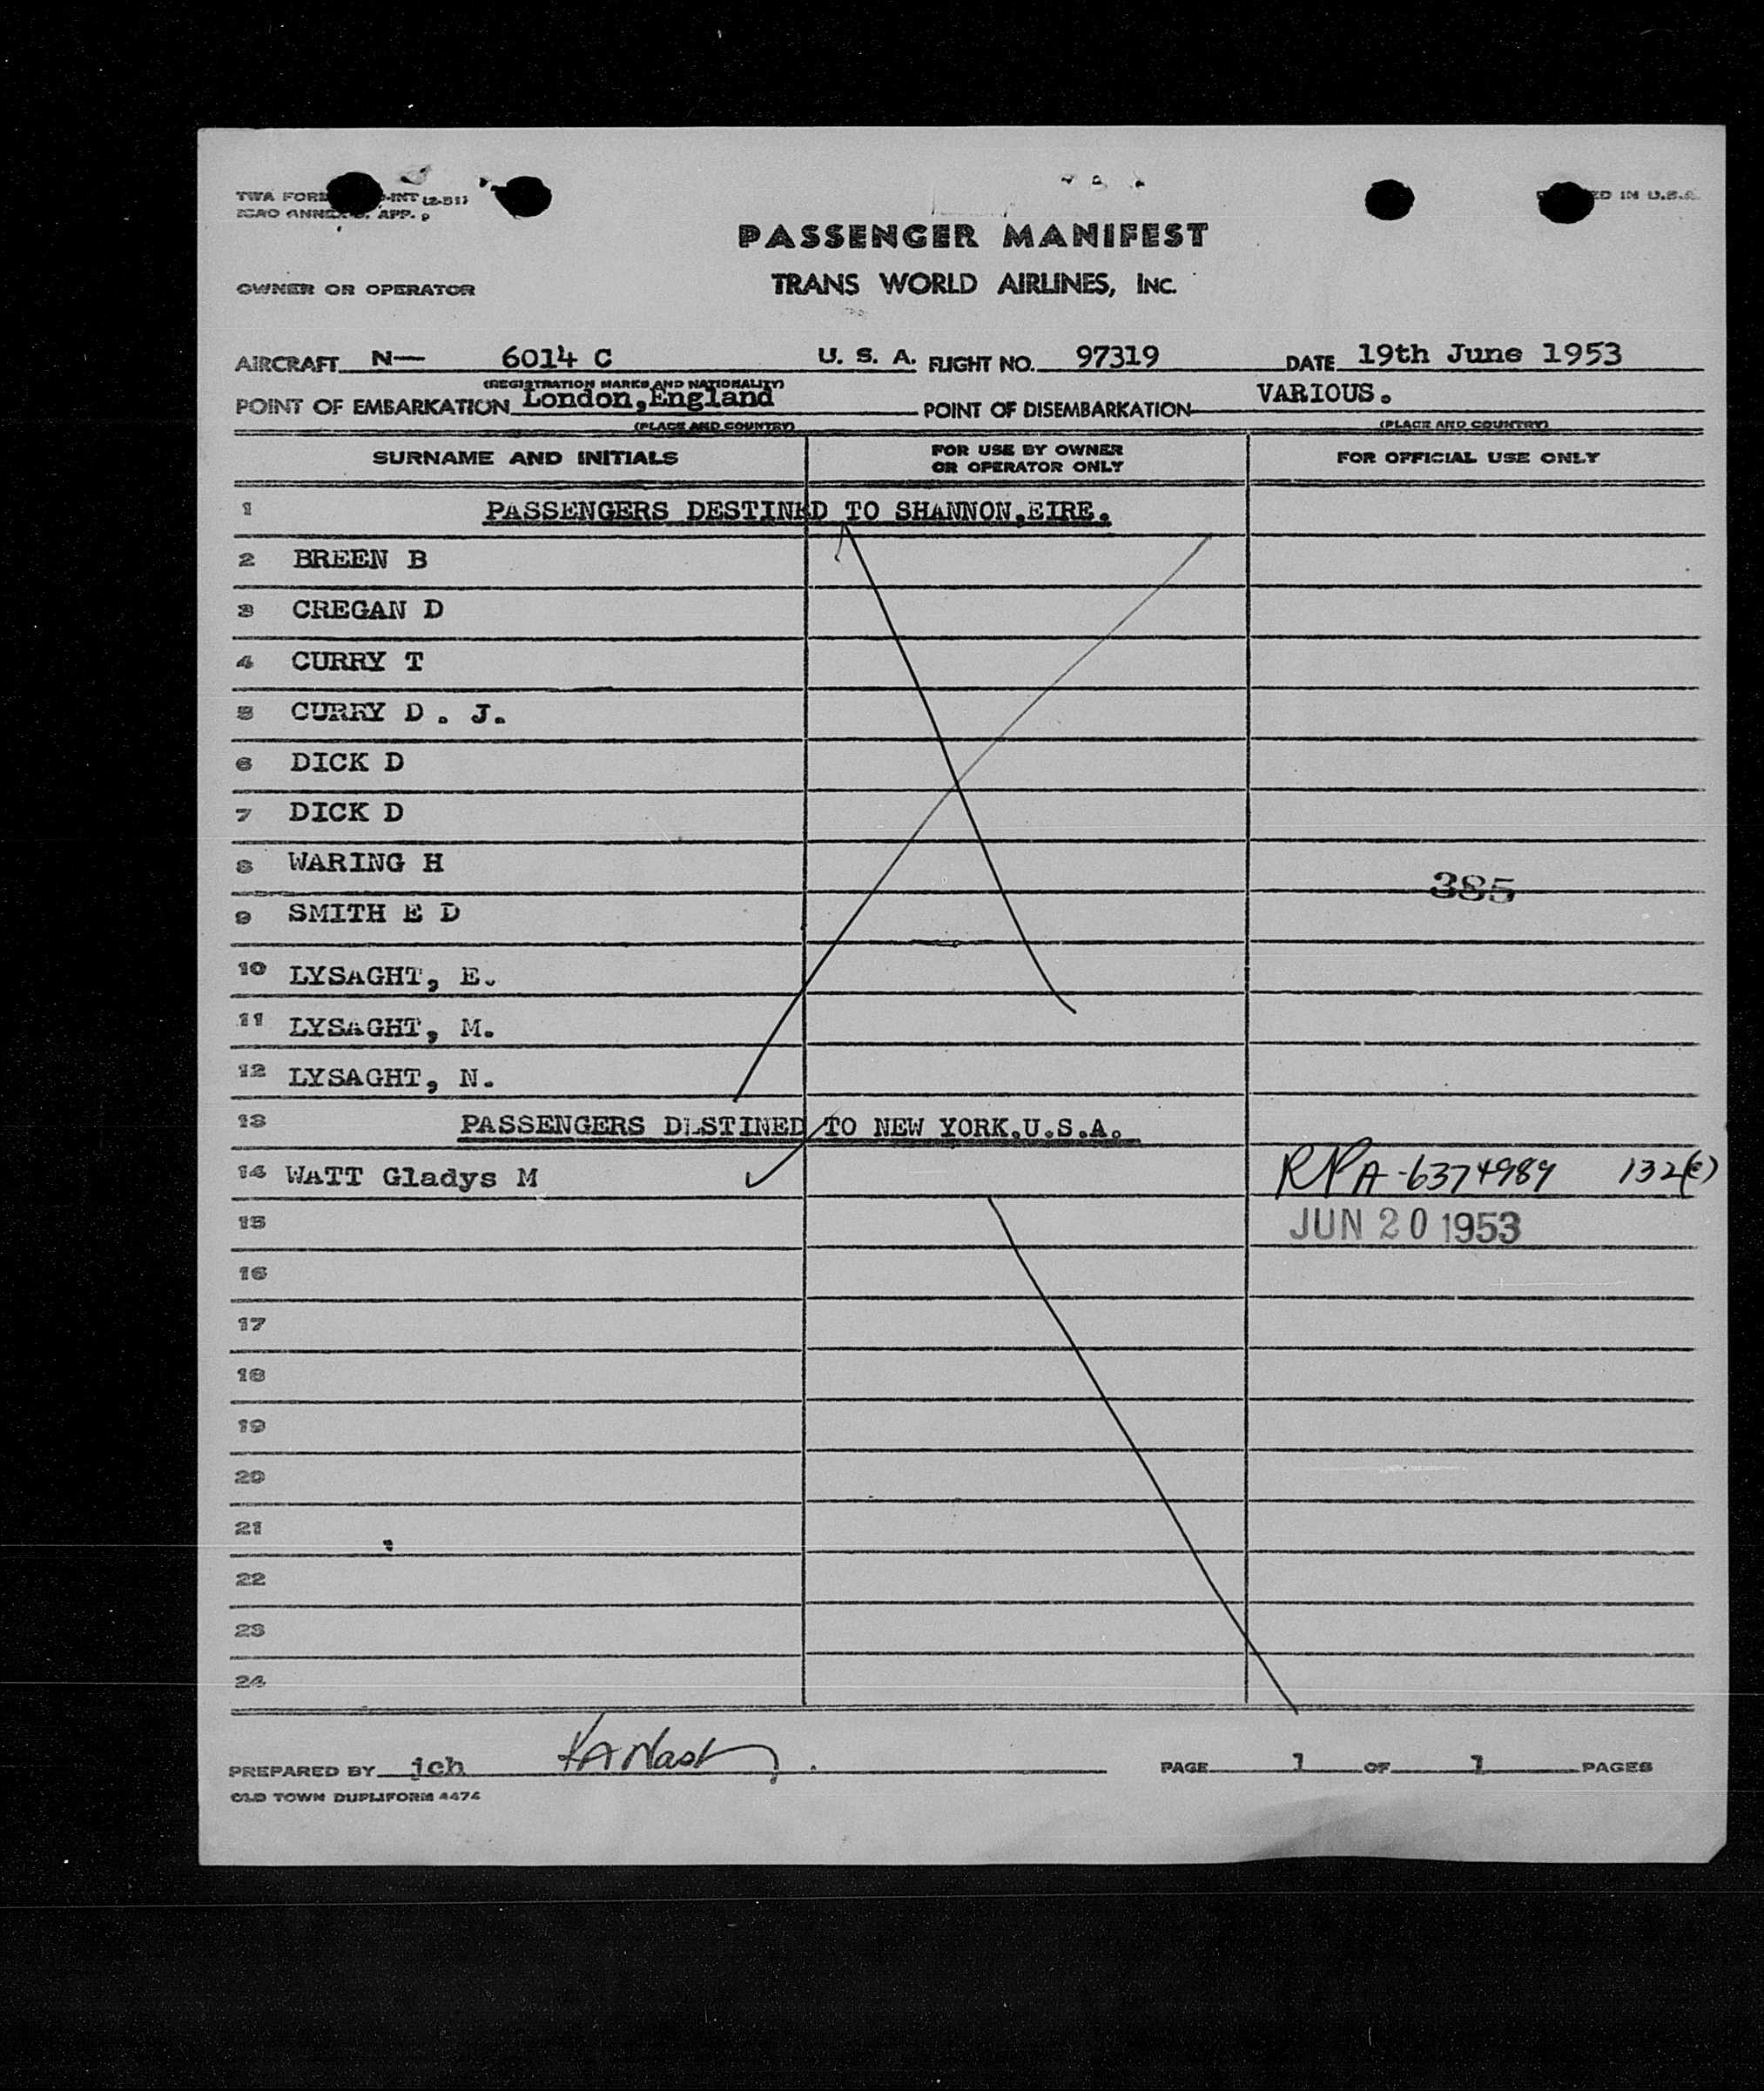 TWA FORM -INT (2-51)
ICAO ANNEX 9, APP.
PRINTED IN U.S.A.
PASSENGER MANIFEST
OWNER OR OPERATOR TRANS WORLD AIRLINES, INC.
AIRCRAFT N— 6014 C U. S. A. FLIGHT NO. 97319 DATE 19th June 1953
(REGISTRATION MARKS AND NATIONALITY)
POINT OF EMBARKATION London,England POINT OF DISEMBARKATION VARIOUS.
(PLACE AND COUNTRY) (PLACE AND COUNTRY)
SURNAME AND INITIALS FOR USE BY OWNER OR OPERATOR ONLY FOR OFFICIAL USE ONLY
1 PASSENGERS DESTINED TO SHANNON,EIRE.
2 BREEN B
3 CREGAN D
4 CURRY T
5 CURRY D . J.
6 DICK D
7 DICK D
8 WARING H
385
9 SMITH E D
10 LYSAGHT, E.
11 LYSAGHT, M.
12 LYSAGHT, N.
13 PASSENGERS DESTINED TO NEW YORK.U.S.A.
14 WATT Gladys M RPA-6374989 132(e)
15 JUN 20 1953
16
17
18
19
20
21
22
23
24
PREPARED BY jch KA Nash PAGE 1 OF 1 PAGES
OLD TOWN DUPLIFORM 4474